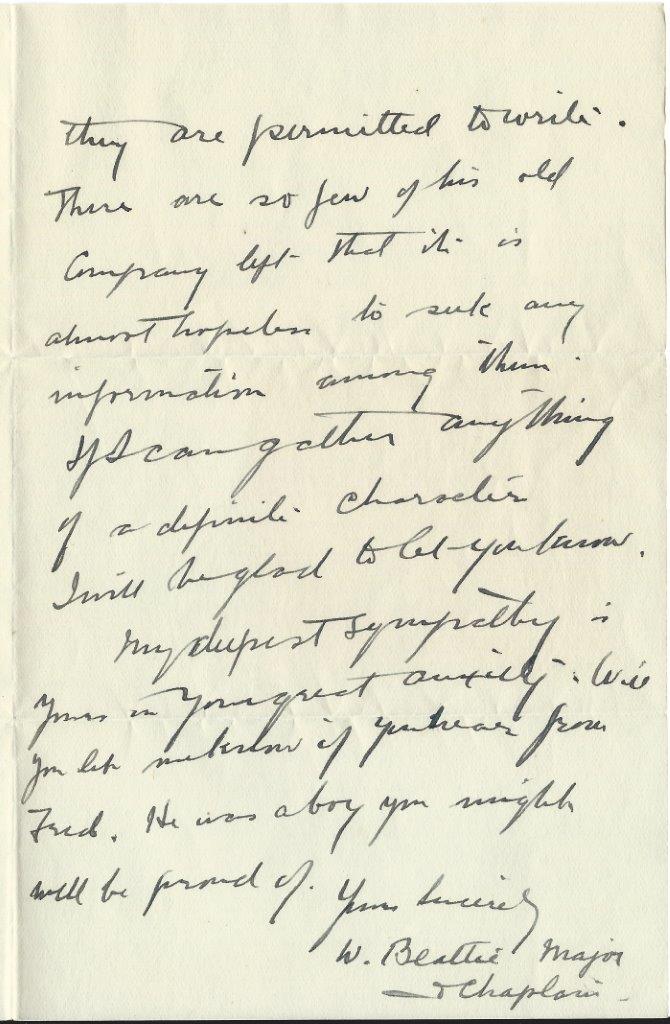 they are permitted to write.
There are so few of his old
Company left that it is
almost hopeless to seek any
information among them.
If I can gather anything
of a definite character
I will be glad to let you know.
My deepest sympathy is
yours in your great anxiety. Will
you let me know if you hear from
Fred. He was a boy you might
well be proud of.
Yours Sincerely
W. Beattie Major
& Chaplain.